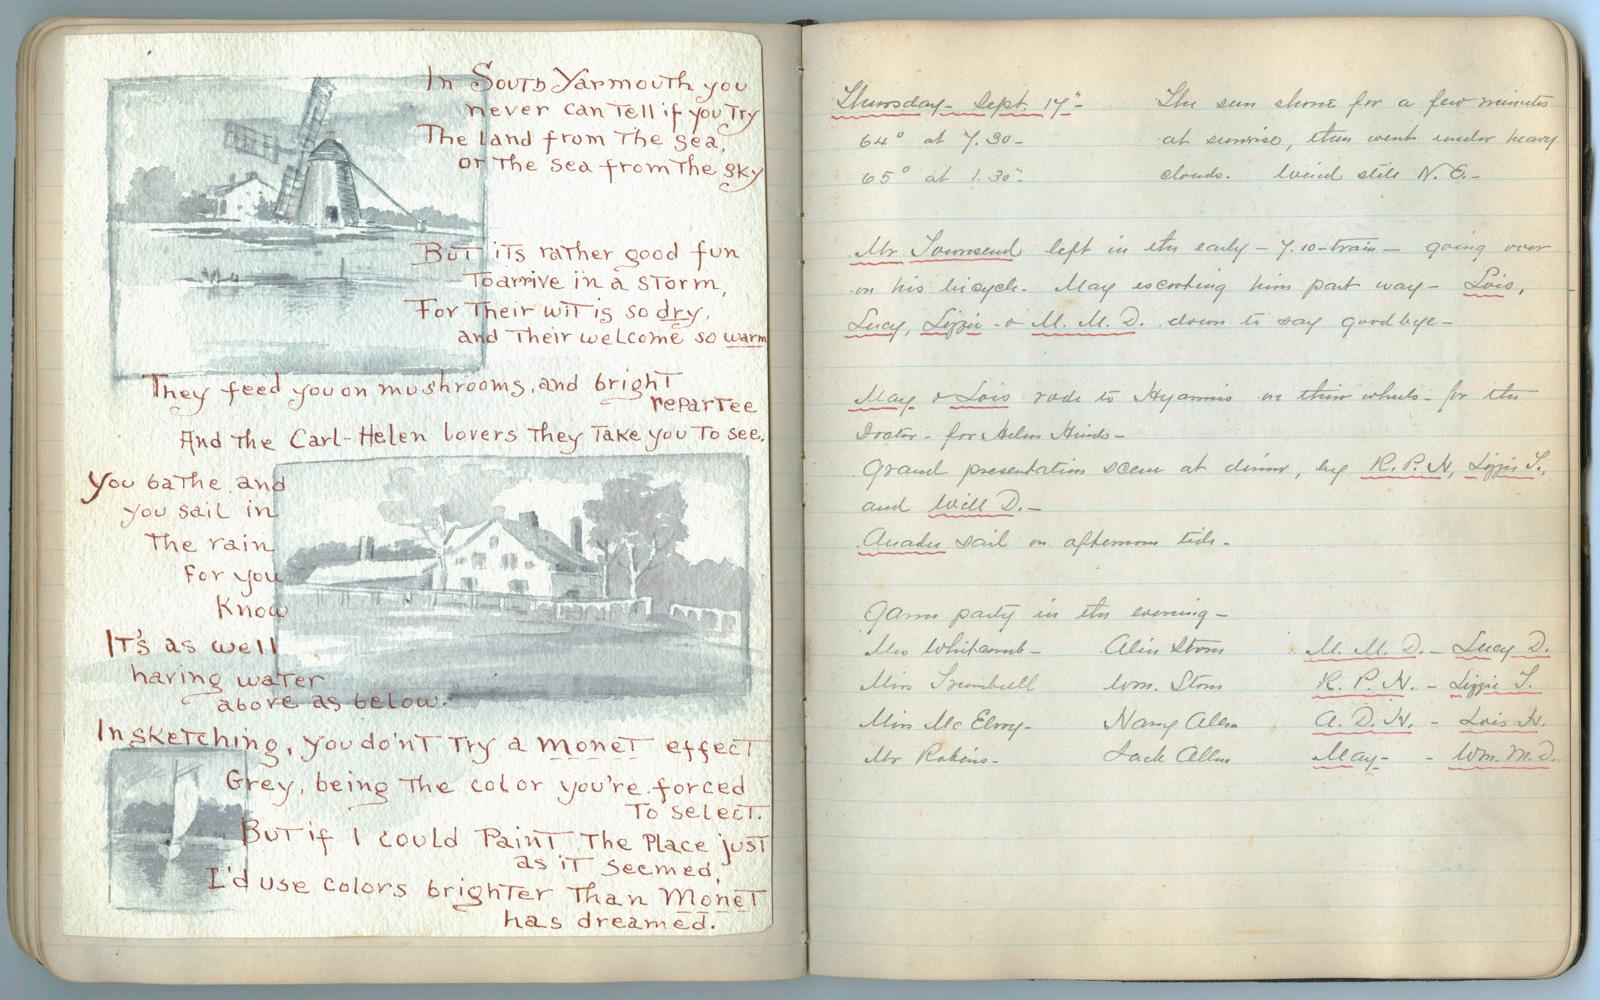 In South Yarmouth you
never can tell if you try
The land from the sea,
or the sea from the sky
But its rather good fun
To arrive in a storm,
For their wit is so dry,
and their welcome so warm
They feed you on mushrooms, and bright
repartee
And the Carl-Helen lovers they take you to see.
You bathe and
you sail in
the rain
for you
know
It's as well
having water
above as below.
In sketching, you do'nt try a Monet effect
Grey, being the color you're forced
to select.
But if I could paint the place just
as it seemed,
I'd use colors brighter than Monet
has dreamed.
Thursday - Sept. 17" - The sun shone for a few minutes
64° at 7.30 - at sunrise, then went under heavy
65° at 1.30" clouds. Wind still N. E. -
Mr Townsend left in the early - 7.10 - train - going over
on his bicycle - May escorting him part way - Lois,
Lucy, Lizzie - & M. M. D. down to say goodbye -
May & Lois rode to Hyannis on their wheels - for the
Doctor - for Helen Hinds -
Grand presentation scene at dinner, by R. P. N, Lizzie T.,
and Will D. -
sail on afternoon tide -
Game party in the evening -
Whitcomb - Alice Stone M. M. D. - Lucy D.
Miss Trumbull Wm. Stone R. P. N. - Lizzie T.
Miss McElroy - Nancy Allen A. D. N. - Lois
Mr Robins - Jack Allen May - - Wm. M. D.